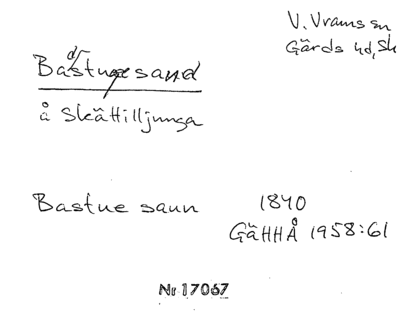 V. Vrams sn
Gärds hd, Sk
Bastuesand
å Skättilljunga
Bastue saun 1840
GäHHÅ 1958:61
Nr 17067